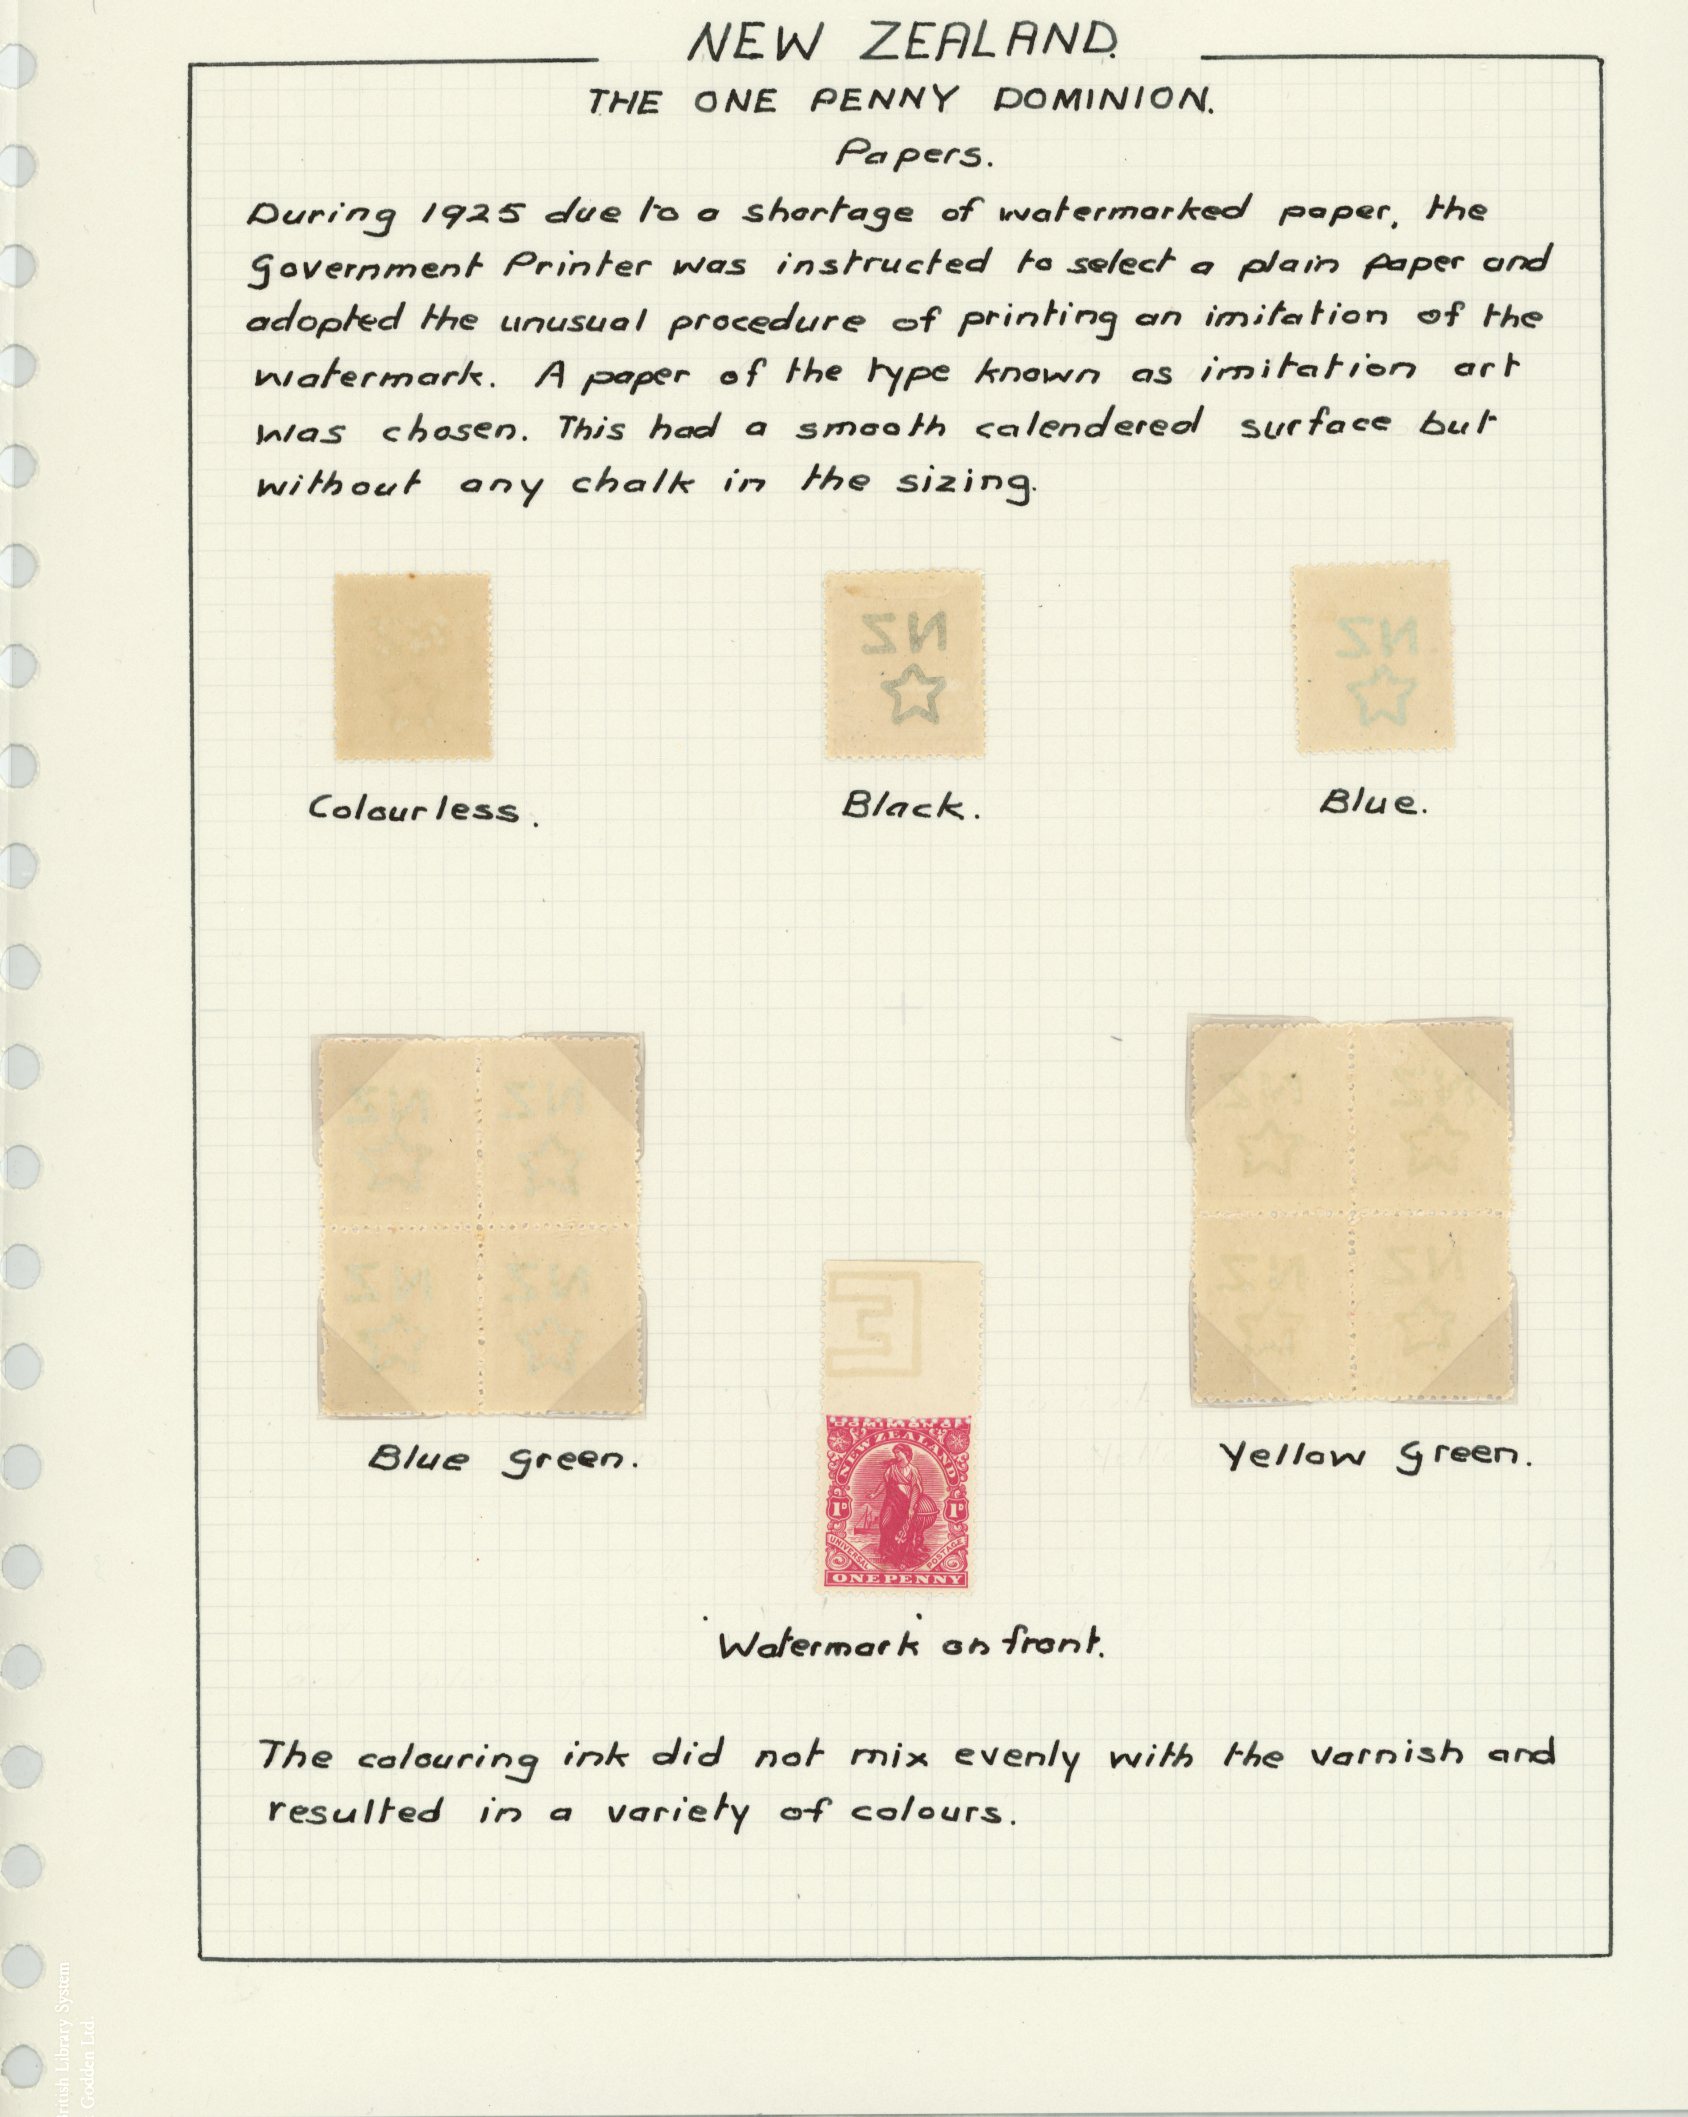 NEW ZEALAND.
THE ONE PENNY DOMINION.
Papers.
During 1925 due to a shortage of watermarked paper, the
Government Printer was instructed to select a plain paper and
adopted the unusual procedure of printing an imitation of the
watermark. A paper of the type known as imitation art
was chosen. This had a smooth calendered surface but
without any chalk in the sizing.
NZ
NZ
Colourless.
Black.
Blue.
NZ NZ
NZ NZ
NZ NZ
NZ NZ
DOMINION OF
NEW ZEALAND
1D 1D
UNIVERSAL POSTAGE
ONE PENNY
Blue Green.
Yellow Green.
'Watermark' on front.
The colouring ink did not mix evenly with the varnish and
resulted in a variety of colours.
British Library System
Godden Ltd.